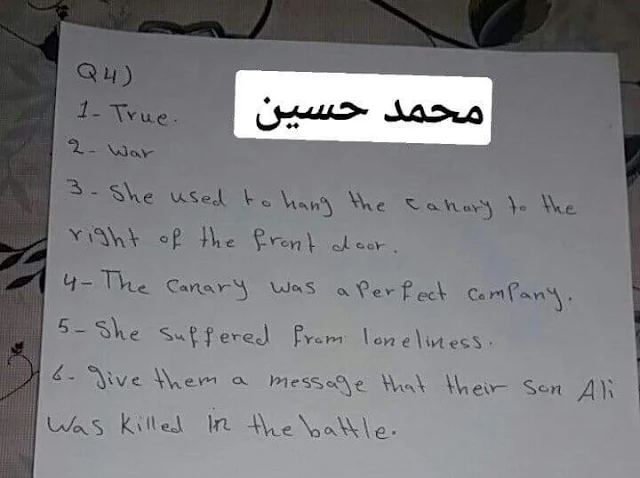 Q4)
محمد حسين
1- True.
2- War
3- She used to hang the canary to the
right of the front door.
4- The canary was a perfect company.
5- She suffered from loneliness.
6- give them a message that their son Ali
was killed in the battle.